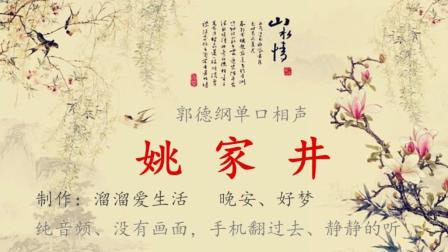 山水情
郭德纲单口相声
姚家井
制作：溜溜爱生活 晚安、好梦
纯音频、没有画面，手机翻过去、静静的听